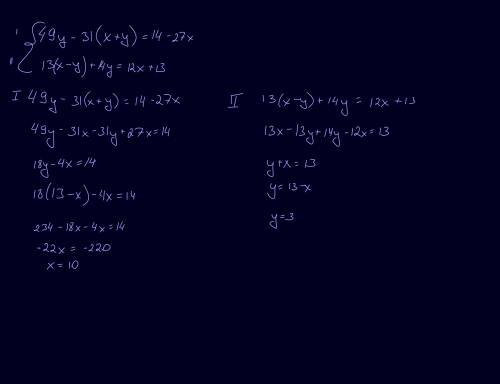 I 49y - 31(x+y) = 14 - 27x
II 13(x-y) + 14y = 12x + 13
I 49y - 31(x+y) = 14 - 27x
49y - 31x - 31y + 27x = 14
18y - 4x = 14
18(13 - x) - 4x = 14
234 - 18x - 4x = 14
-22x = -220
x = 10
II 13(x-y) + 14y = 12x + 13
13x - 13y + 14y - 12x = 13
y + x = 13
y = 13 - x
y = 3